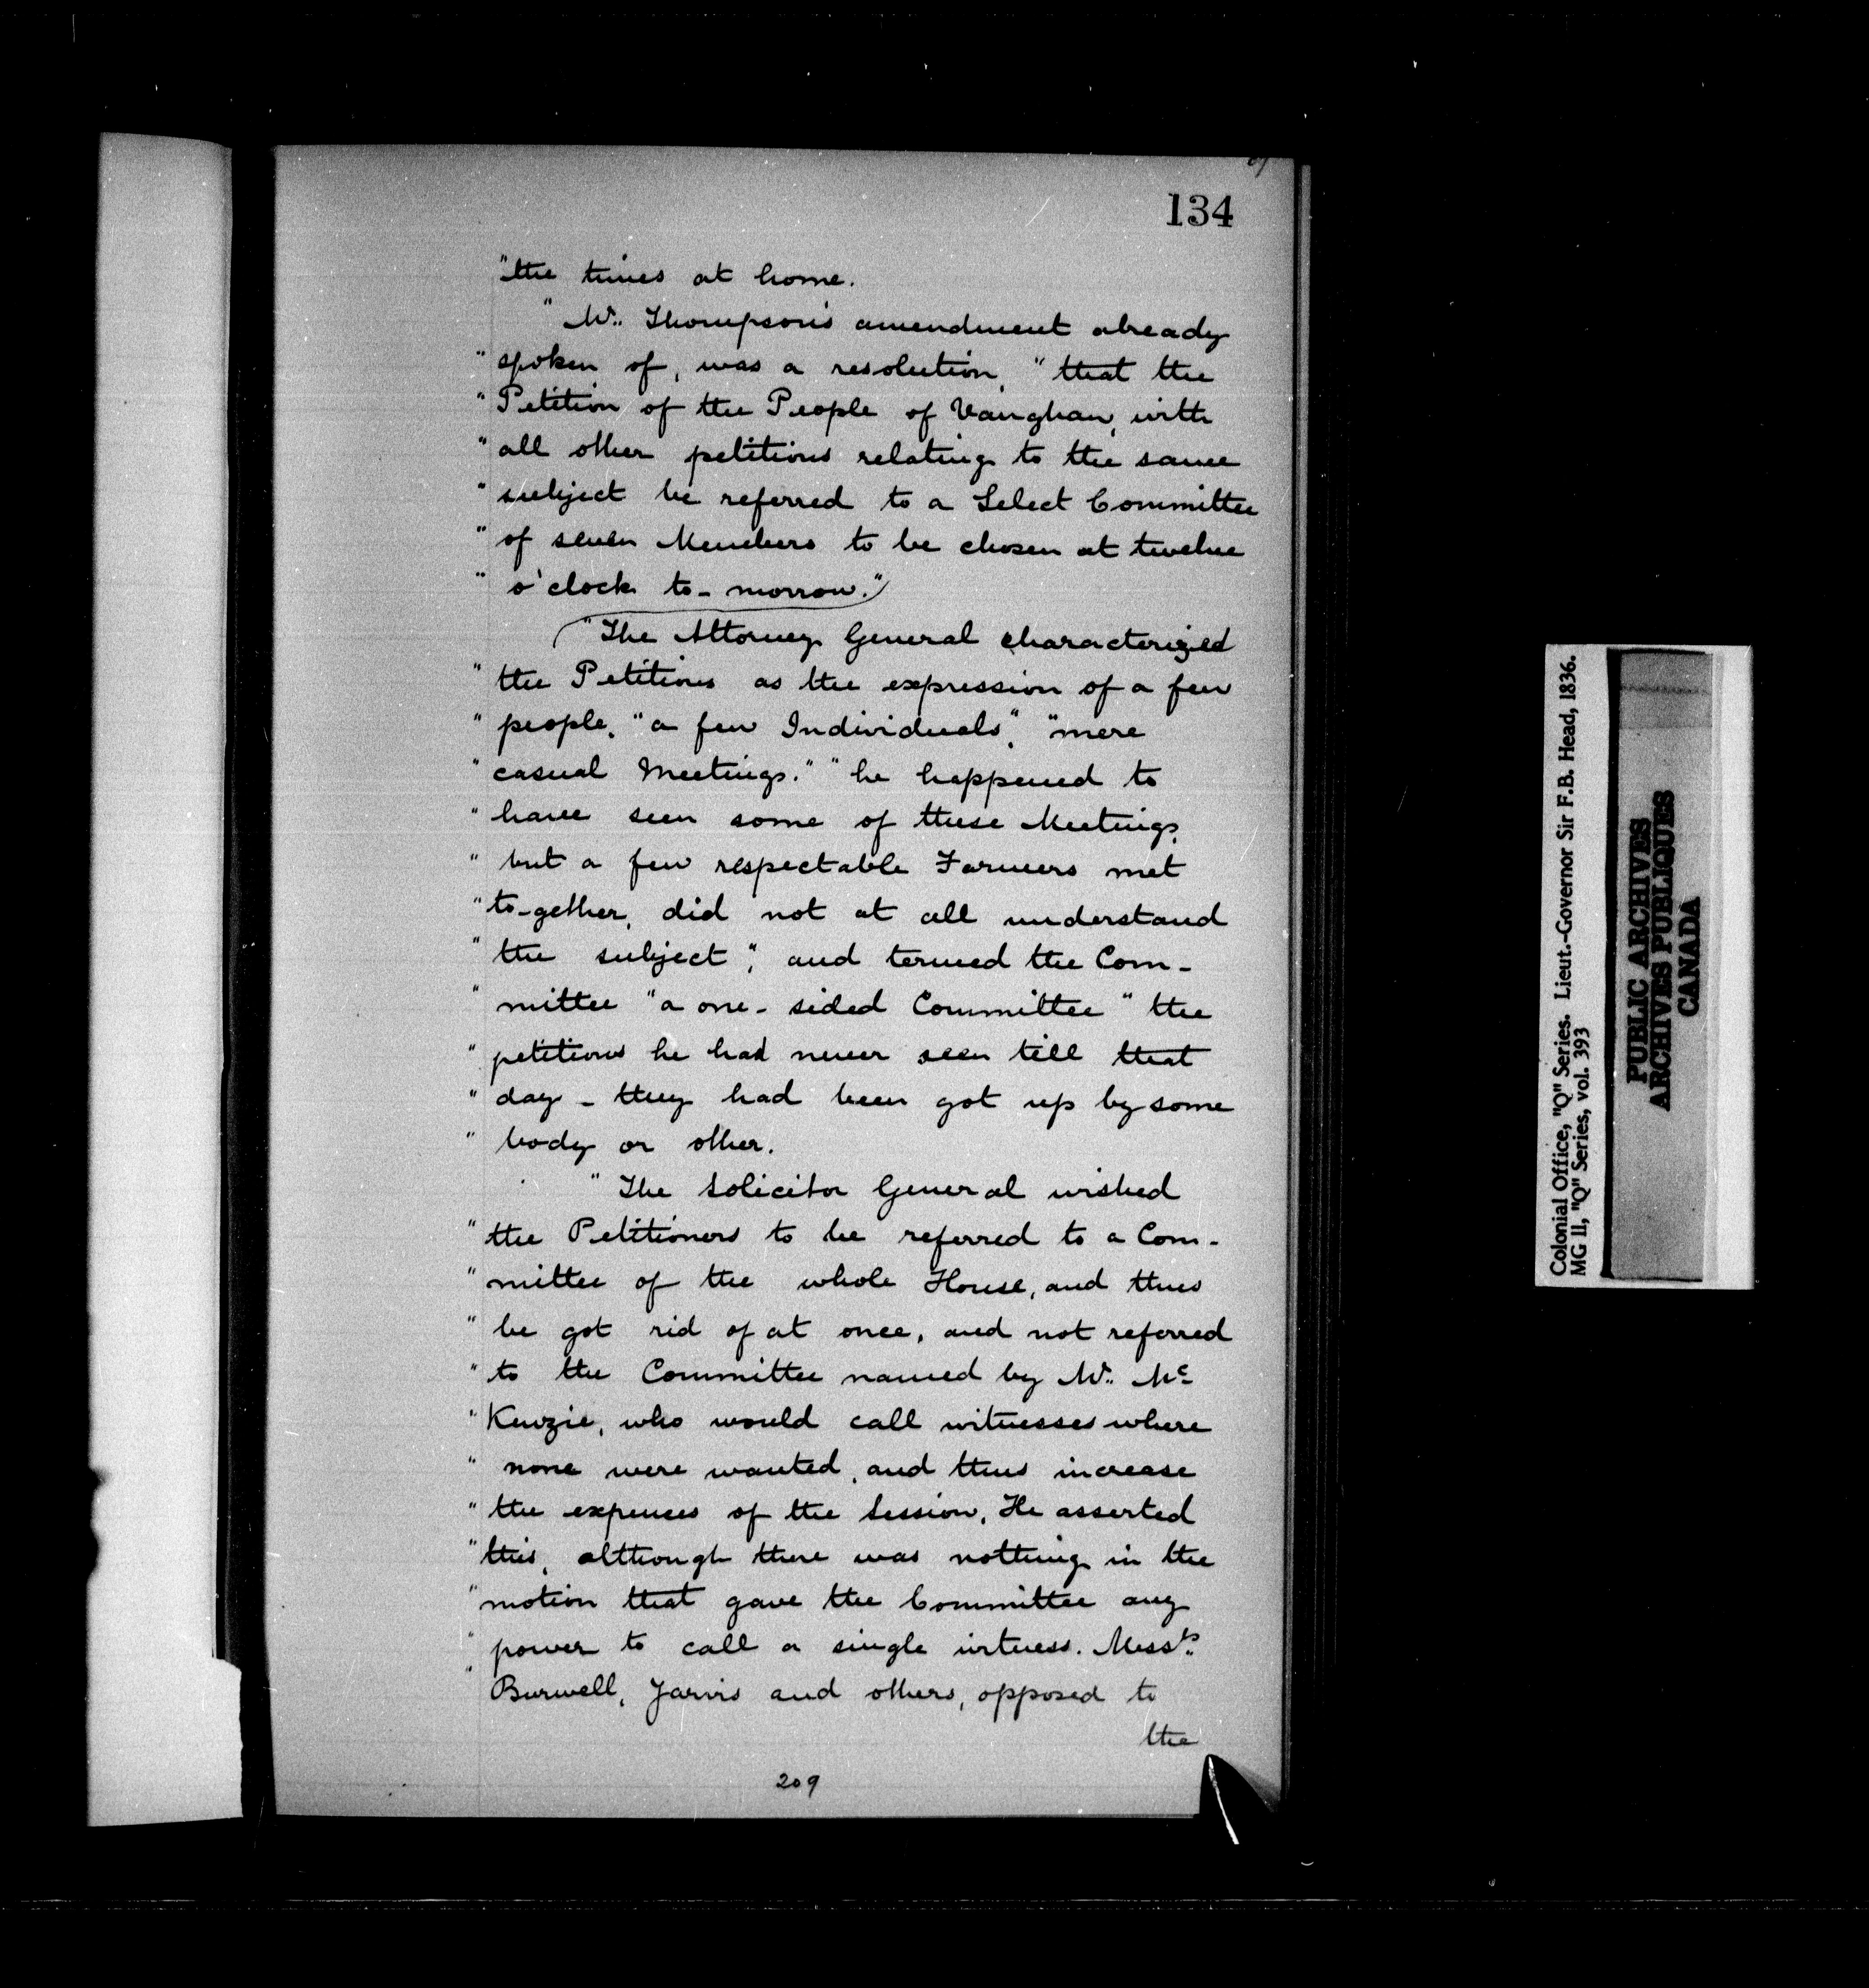 134
"the times at home.
" Mr. Thompson's amendment already
" spoken of, was a resolution, "that the
" Petition of the People of Vaughan, with
" all other petitions relating to the same
" subject be referred to a Select Committee
" of seven Members to be chosen at twelve
" o'clock to-morrow."
"The Attorney General characterized
" the Petitions as the expression of a few
" people, "a few Individuals", "mere
" casual Meetings." "he happened to
" have seen some of these Meetings,
" but a few respectable Farmers met
" to-gether, did not at all understand
" the subject", and termed the Com-
" mittee "a one-sided Committee" the
" petitions he had never seen till that
" day - they had been got up by some
" body or other.
" The Solicitor General wished
" the Petitioners to be referred to a Com-
" mittee of the whole House, and thus
" be got rid of at once, and not referred
" to the Committee named by Mr. Mc
" Kenzie, who would call witnesses where
" none were wanted, and thus increase
" the expenses of the Session. He asserted
" this, although there was nothing in the
" motion that gave the Committee any
" power to call a single witness. Messrs.
" Burwell, Jarvis and others, opposed to
the
209
Colonial Office, "Q" Series. Lieut.-Governor Sir F.B. Head, 1836.
MG 11, "Q" Series, vol. 393
PUBLIC ARCHIVES
ARCHIVES PUBLIQUES
CANADA